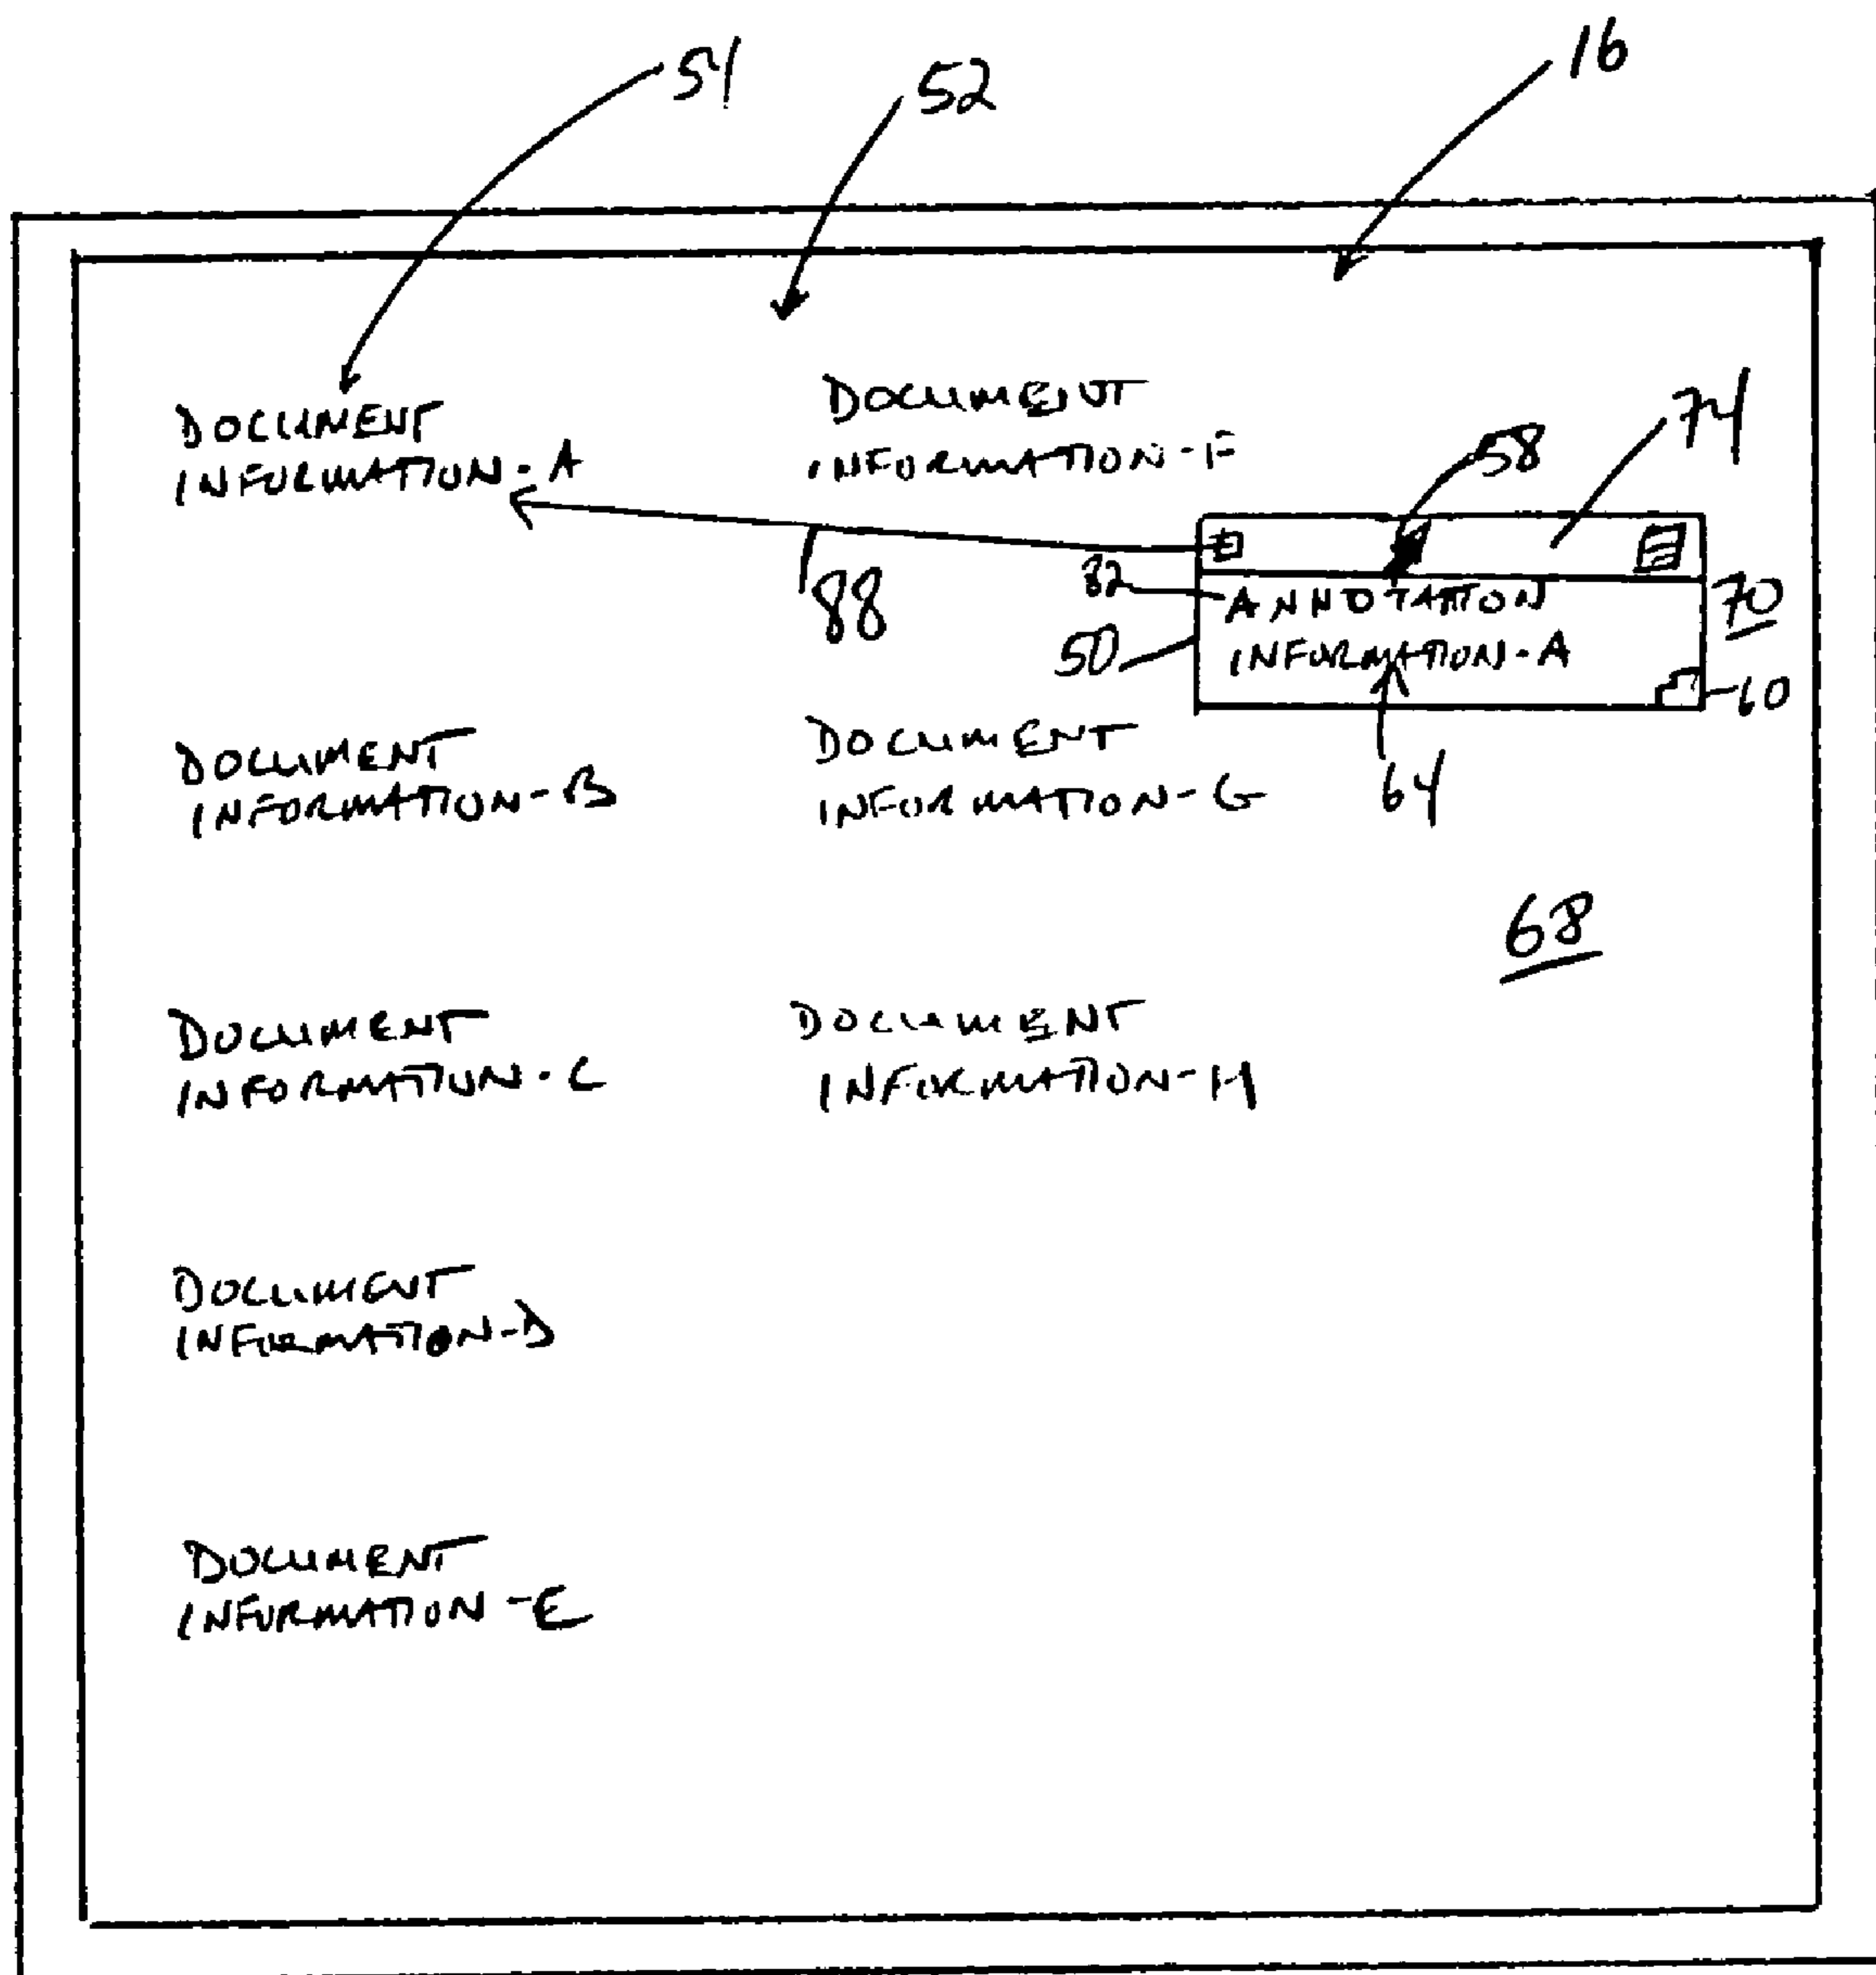 54
52
16
DOCUMENT
INFORMATION-A
DOCUMENT
INFORMATION-F
58
74
88
82
ANNOTATION
INFORMATION-A
70
50
60
64
DOCUMENT
INFORMATION-B
DOCUMENT
INFORMATION-G
68
DOCUMENT
INFORMATION-C
DOCUMENT
INFORMATION-H
DOCUMENT
INFORMATION-D
DOCUMENT
INFORMATION-E